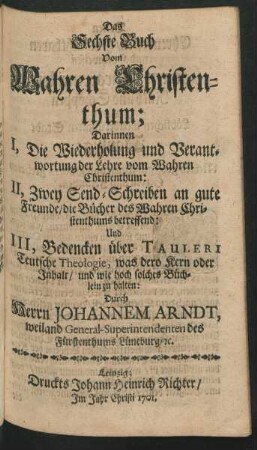 Das
Sechste Buch
Vom
Wahren Christen-
thum;
Darinnen
I, Die Wiederholung und Verant-
wortung der Lehre vom Wahren
Christenthum:
II, Zwey Send-Schreiben an gute
Freunde/die Bücher des Wahren Chri-
stenthums betreffend:
Und
III, Bedencken über TAULERI
Teutsche Theologie, was dero Kern oder
Inhalt/ und wie hoch solches Büch-
lein zu halten:
Durch
Herrn JOHANNEM ARNDT,
weiland General-Superintendenten des
Fürstenthums Lüneburg/ꝛc.
Leipzig:
Druckts Johann Heinrich Richter/
Im Jahr Christi